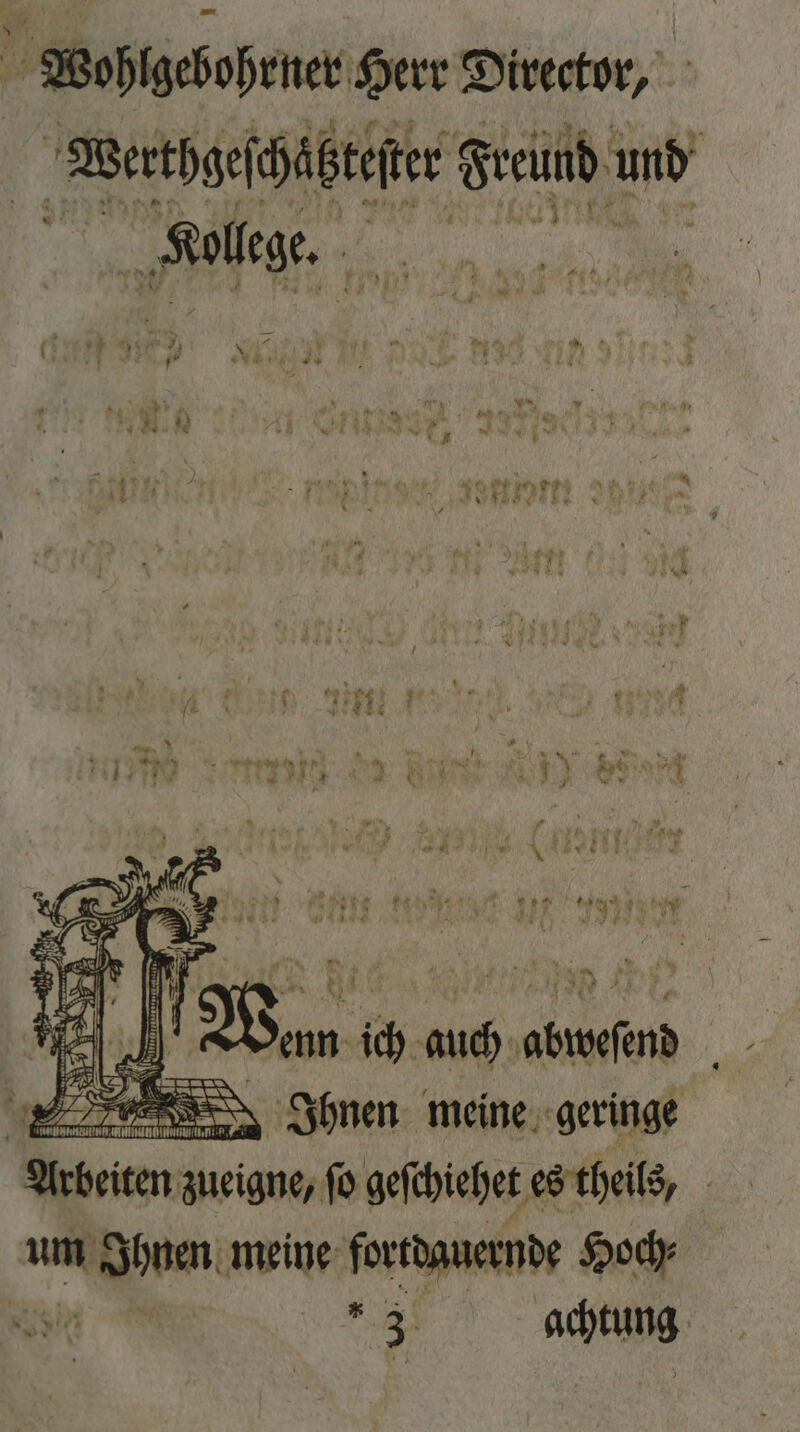 Wohlgebohrner Herr Director,
Werthgeſchaͤtzteſter Freund und
Kollege.
Wenn ich auch abweſend
Ihnen meine geringe
Arbeiten zueigne, ſo geſchiehet es theils,
um Ihnen meine fortdauernde Hoch⸗
* 3 achtung